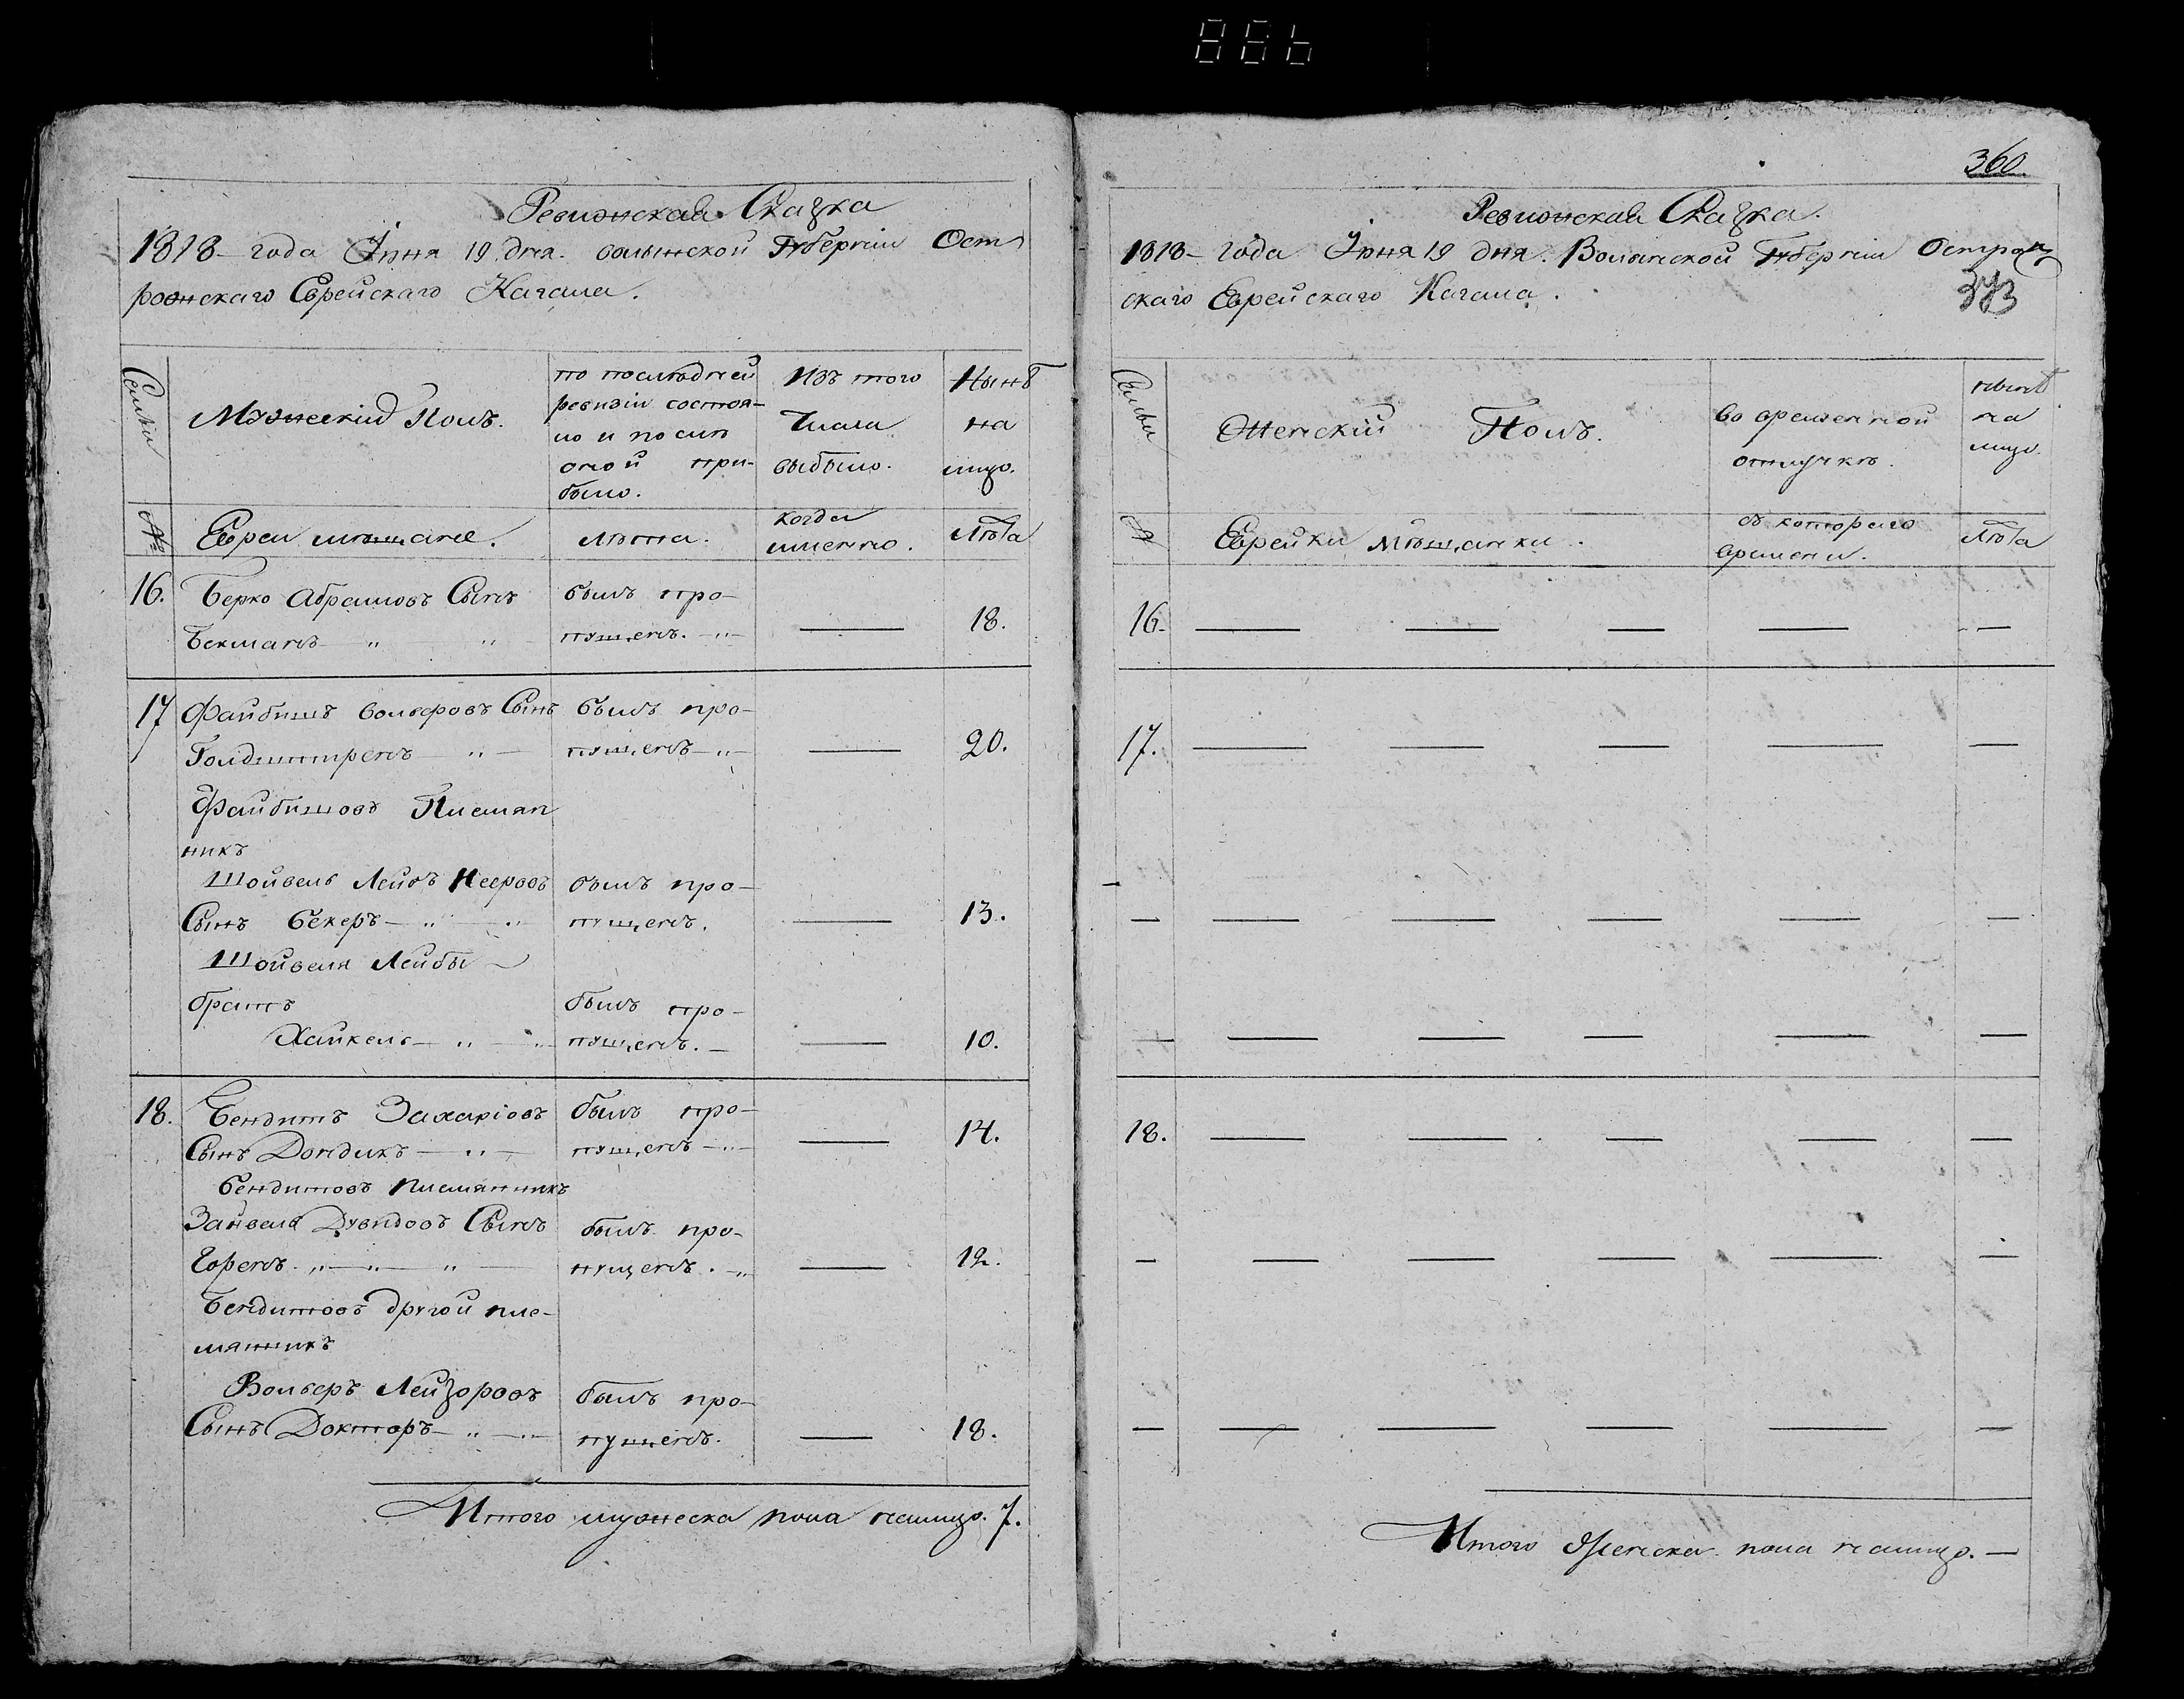 886
Ревижская Сказка
1818 года Іюня 19 дня. волынской Губерніи Ост
рожскаго Еврейскаго Кагала.
Семьи
Мужескій Полъ.
по последней
ревизіи состоя-
ло и после
оной при-
было.
Изъ того
Числа
выбыло.
Нынѣ
на
лицо.
№
Евреи мѣщане.
лѣта.
когда
именно.
лѣта
16. Берко Абрамовъ Сынъ былъ про-
Бекманъ — „ „ пущенъ. — „ — — 18.
17 Файбишъ вольфовъ Сынъ былъ про-
Голдштренъ — „ — пущенъ — „ — — 20.
Файбишовъ Племян
никъ
Шойвель Лейбъ Мееровъ былъ про-
Сынъ бекеръ — „ — „ пущенъ. — 13.
Шойвеля Лейбы —
братъ былъ про-
Хайкель — „ — „ пущенъ. — — 10.
18. Бендитъ Захаріовъ былъ про-
Сынъ Дондикъ — „ — пущенъ — „ — — 14.
бендитовъ племянникъ
Зайвель Дувидовъ Сынъ былъ про-
Горенъ. „ — „ — „ — пущенъ. — „ — 12.
Бендитовъ другой пле-
мянникъ
Вольфъ Лейзоровъ былъ про-
Сынъ Докторъ — „ — „ — пущенъ. — 18.
Итого мужеска пола налицо. 7.
360.
Ревижская Сказка.
1818 — года Іюня 19 дня. Волынской Губерніи Острож
373
скаго Еврейскаго Кагала.
Семьи
Женскій Полъ.
во временной
отлучкѣ.
нынѣ
на
лицо.
№
Еврейки Мѣщанки.
съ котораго
времени.
лѣта
16. — — — — —
17. — — — — —
— — — — — —
— — — — — —
18. — — — — —
— — — — — —
— — — — — —
Итого Женска пола налицо. —